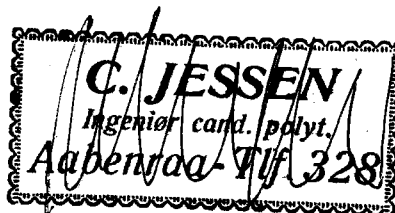 C. JESSEN
Ingeniør cand. polyt.
Aabenraa-Tlf. 328